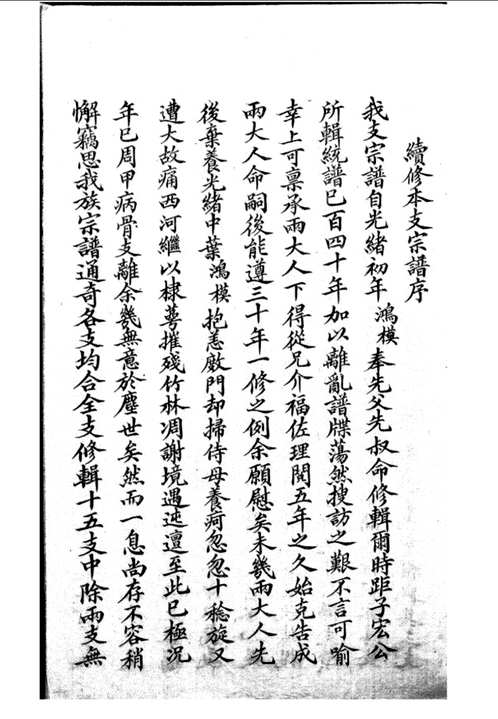 續修本支宗譜序
我支宗譜自光緒初年鴻模奉先父先叔命修輯爾時距子宏公
所輯統譜已百四十年加以離亂譜牒蕩然搜訪之艱不言可喻
幸上可稟承兩大人下得從兄介福佐理閱五年之久始克告成
兩大人命嗣後能遵三十年一修之例余願慰矣未幾兩大人先
後棄養光緒中葉鴻模抱恙敝門却掃侍母養疴忽忽十稔旋又
遭大故痛西河繼以棣萼摧殘竹林凋謝境遇迍邅至此已極況
年已周甲病骨支離余幾無意於塵世矣然而一息尚存不容稍
懈竊思我族宗譜通奇各支均合全支修輯十五支中除兩支無